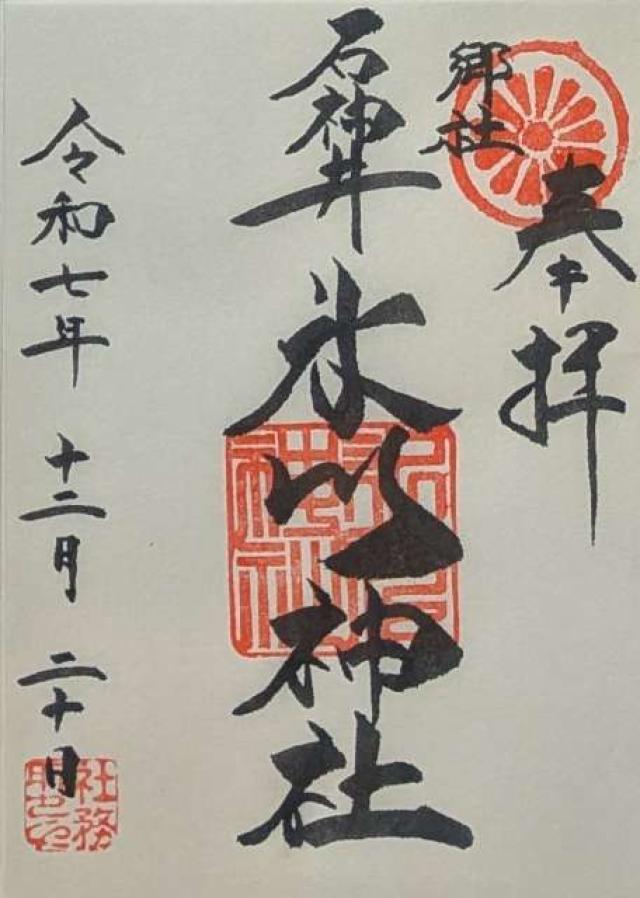 奉拝
郷社
石神井
氷川神社
令和七年 十二月 二十日
社務
所印